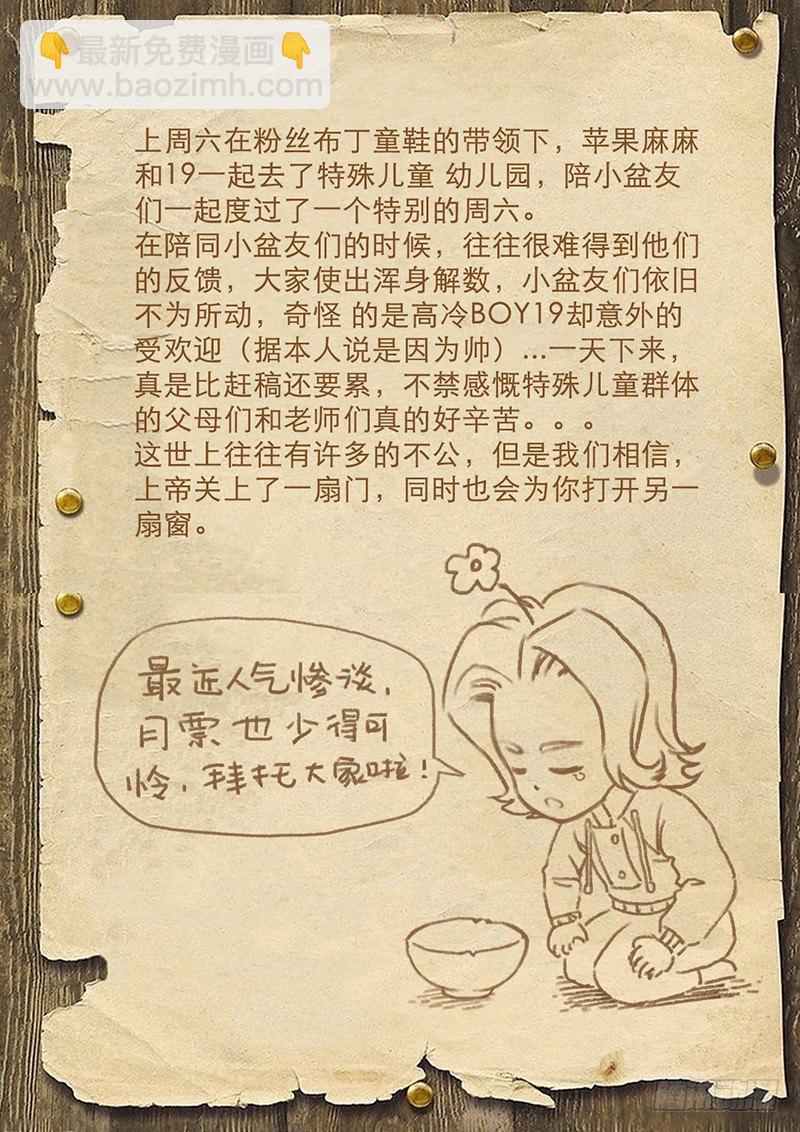 最新免费漫画
www.baozimh.com
上周六在粉丝布丁童鞋的带领下，苹果麻麻
和19一起去了特殊儿童 幼儿园，陪小盆友
们一起度过了一个特别的周六。
在陪同小盆友们的时候，往往很难得到他们
的反馈，大家使出浑身解数，小盆友们依旧
不为所动，奇怪 的是高冷BOY19却意外的
受欢迎（据本人说是因为帅）...一天下来，
真是比赶稿还要累，不禁感慨特殊儿童群体
的父母们和老师们真的好辛苦。。。
这世上往往有许多的不公，但是我们相信，
上帝关上了一扇门，同时也会为你打开另一
扇窗。
最近人气惨淡，
月票也少得可
怜，拜托大家啦！